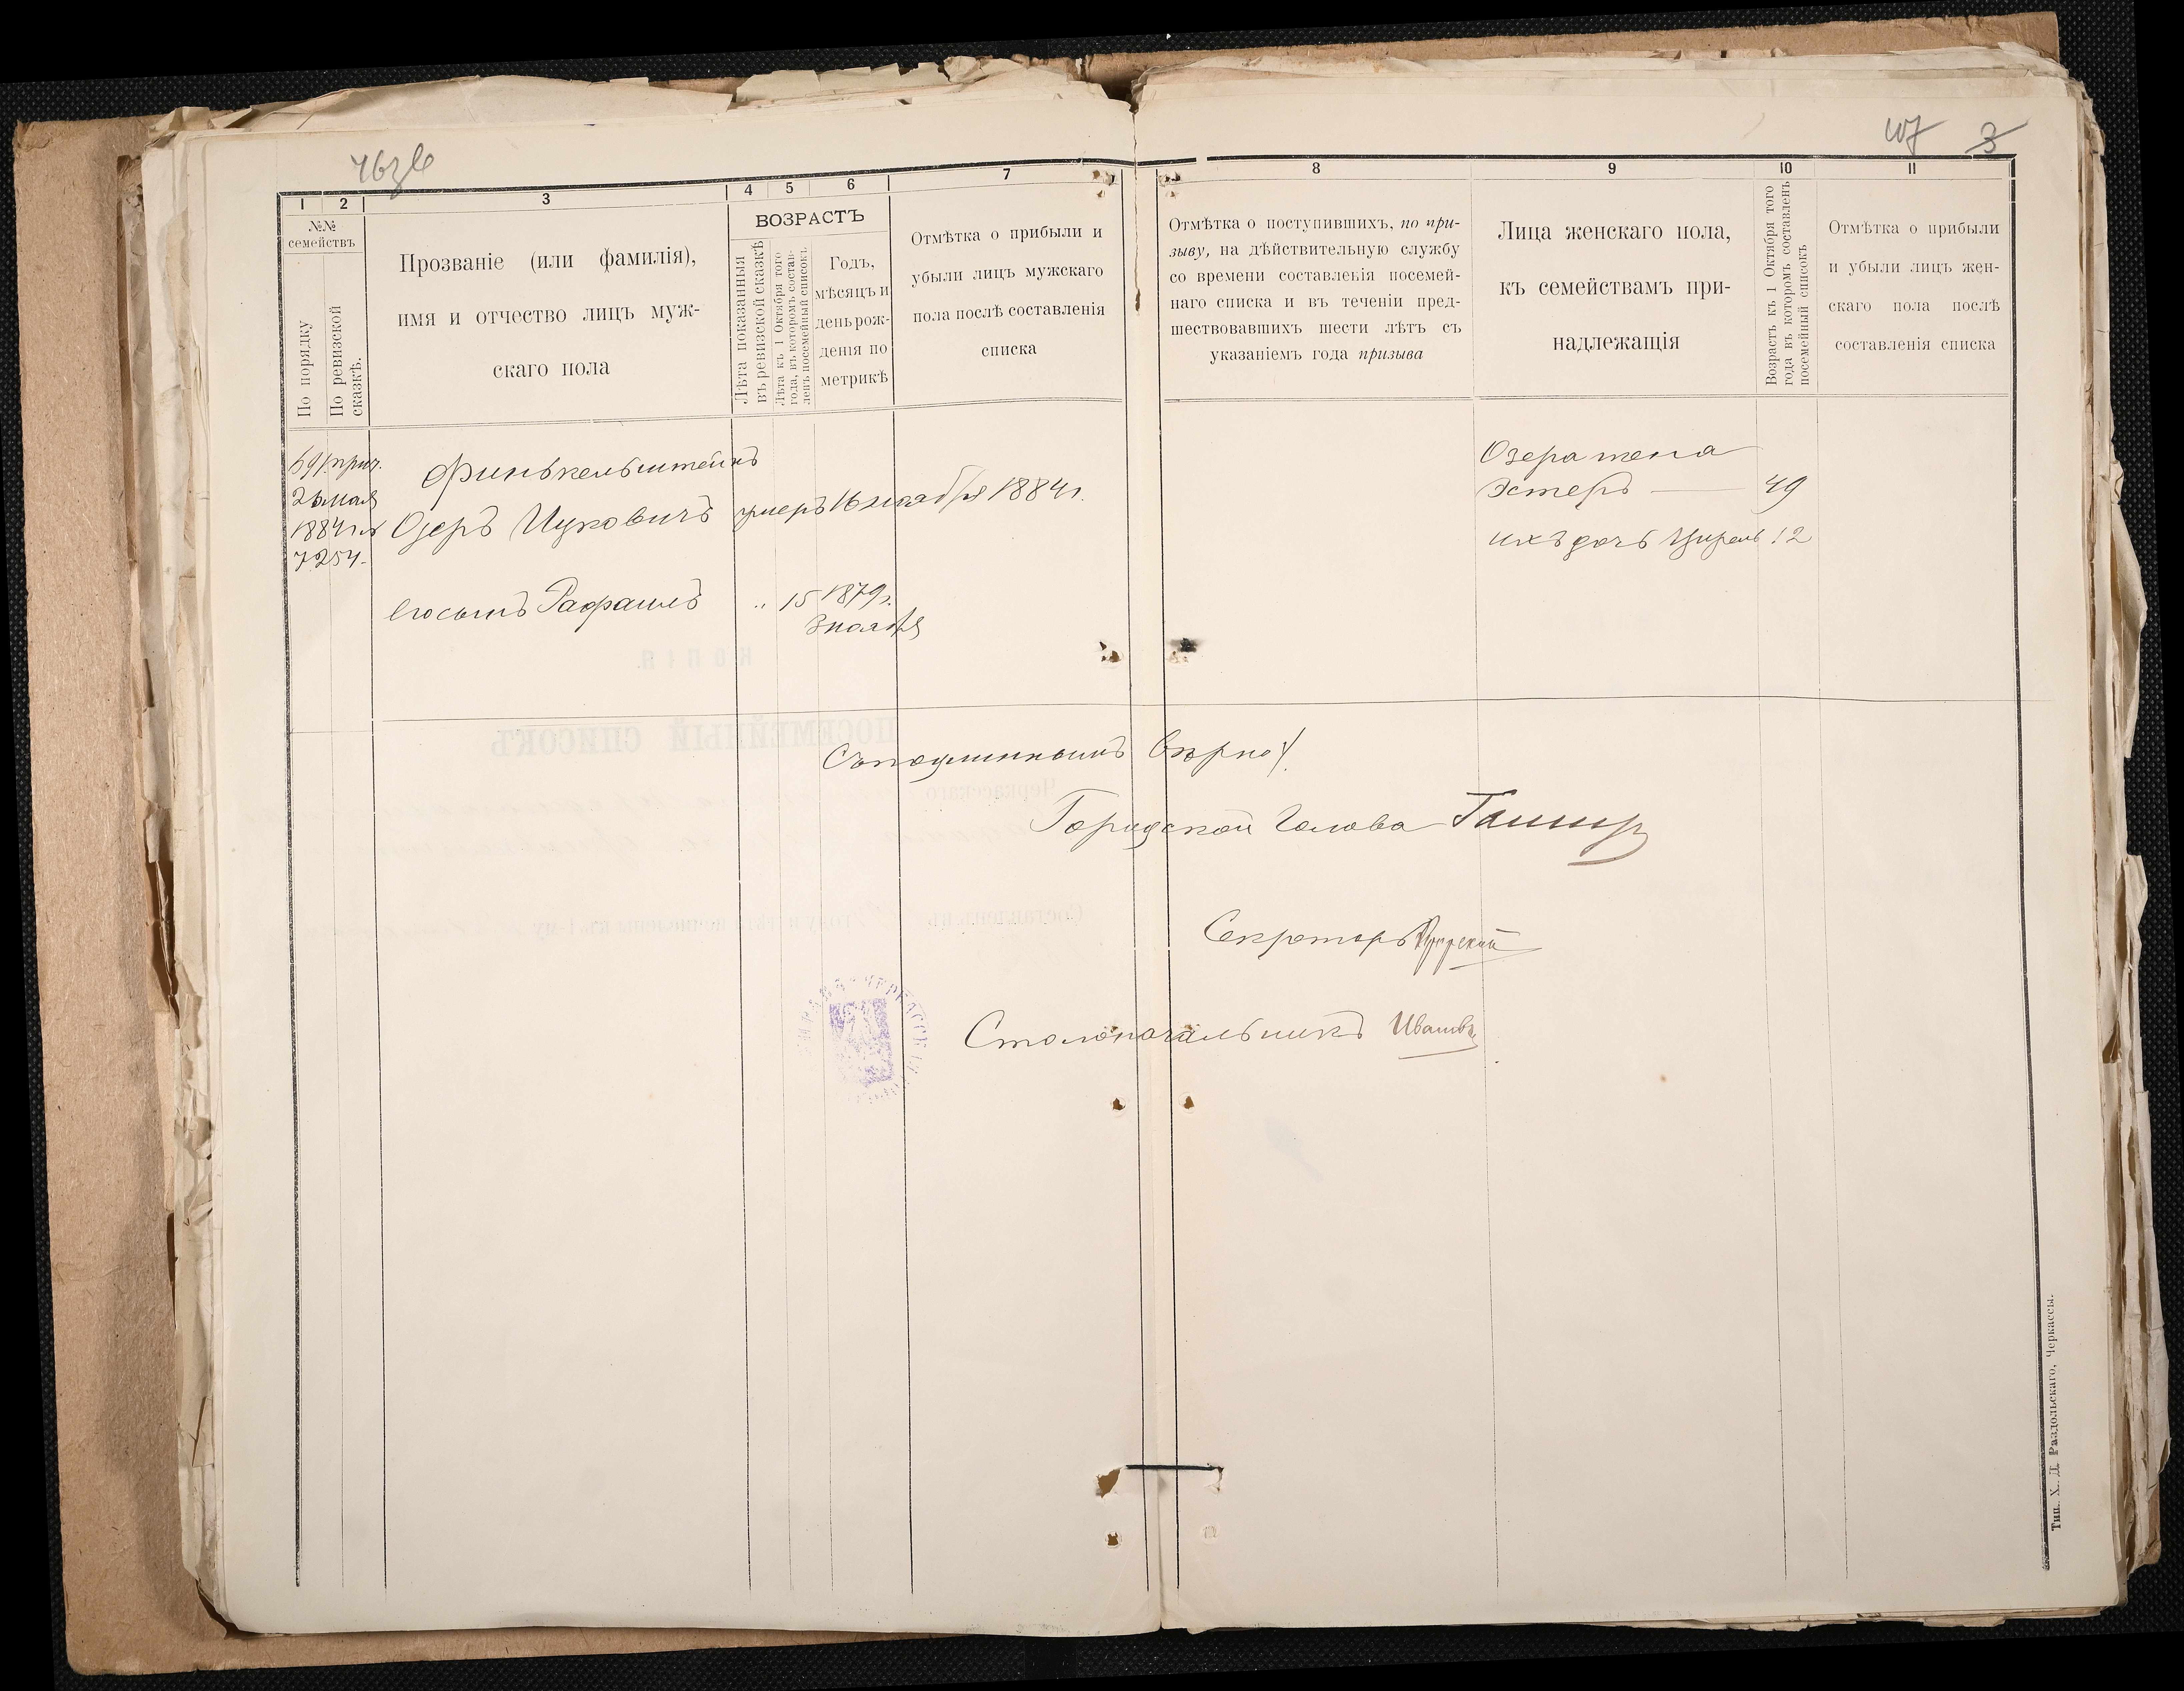 107 3
1 2 3 4 5 6 7
№№
семействъ
По порядку
По ревизской
сказкѣ.
Прозваніе (или фамилія),
имя и отчество лицъ муж-
скаго пола
ВОЗРАСТЪ
Лѣта показанныя
въ ревизской сказкѣ
Лѣта къ 1 Октября того
года, въ которомъ состав-
ленъ посемейный списокъ.
Годъ,
мѣсяцъ и
день рож-
денія по
метрикѣ
Отмѣтка о прибыли и
убыли лицъ мужскаго
пола послѣ составленія
списка
8 9 10 11
Отмѣтка о поступившихъ, по при-
зыву, на дѣйствительную службу
со времени составленія посемей-
наго списка и въ теченіи пред-
шествовавшихъ шести лѣтъ съ
указаніемъ года призыва
Лица женскаго пола,
къ семействамъ при-
надлежащія
Возрастъ къ 1 Октября того
года въ которомъ составленъ
посемейный списокъ
Отмѣтка о прибыли
и убыли лицъ жен-
скаго пола послѣ
составленія списка
691 прич.
26 мая
1884 г. №
7254.
Финькельштейнъ
Озеръ Ицковичъ умеръ 16 ноября 1884 г.
Его сынъ Рафаилъ " 15 1879 г.
3 ноября
Озера жена
Эстеръ — 49
ихъ дочь Цирель 12
Съ подлиннымъ вѣрно:
Городской Голова
Секретарь
Столоначальникъ
Тип. Х. Д. Раздольскаго, Черкассы.